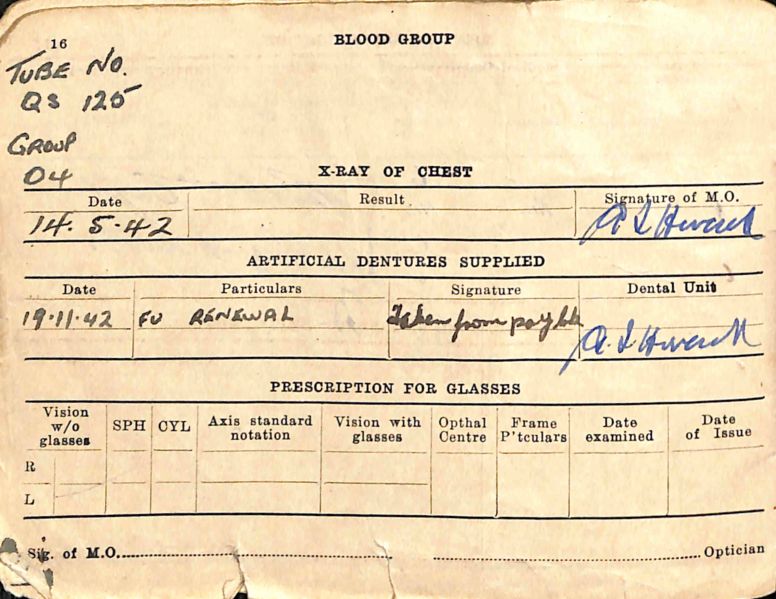 16
BLOOD GROUP
TUBE NO.
QS 125
GROUP
O4
X-RAY OF CHEST
Date Result Signature of M.O.
14. 5-42
ARTIFICIAL DENTURES SUPPLIED
Date Particulars Signature Dental Unit
19·11·42 FU RENEWAL Taken from pay bk
PRESCRIPTION FOR GLASSES
Vision w/o glasses SPH CYL Axis standard notation Vision with glasses Opthal Centre Frame P'tculars Date examined Date of Issue
R
L
Sig. of M.O. Optician